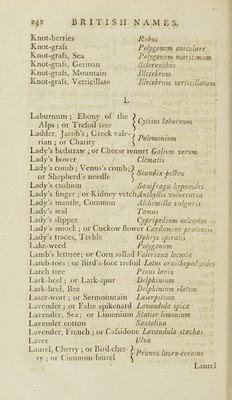 242 BRITISH NAMES.
Knot-berries Rubus
Knot-grass Polygonum aviculare
Knot-grass, Sea Polygonum maritimum
Knot-grass, German Scleranthus
Knot-grass, Mountain Illecebrum
Knot-grass, Verticillate Illecebrum verticillatum
L
Laburnum; Ebony of the Alps; or Trefoil tree } Cytisus laburnum
Ladder, Jacob's; Greek valerian; or Charity } Polemonium
Lady's bedstraw; or Cheese rennet Galium verum
Lady's bower Clematis
Lady's comb; Venus's comb; or Shepherd's needle } Scandix pecten
Lady's cushion Saxifraga hypnoides
Lady's finger; or Kidney vetch Anthyllis vulneraria
Lady's mantle, Common Alchemilla vulgaris
Lady's seal Tamus
Lady's slipper Cypripedium calceolus
Lady's smock; or Cuckow flower Cardamine pratensis
Lady's traces, Treble Ophrys spiralis
Lake-weed Polygonum
Lamb's lettuce; or Corn sallad Valeriana locusta
Lamb-toes; or Bird's-foot trefoil Lotus ornithopodioides
Larch tree Pinus larix
Lark-heel; or Lark-spur Delphinium
Lark-heel, Bee Delphinium elatum
Laser-wort; or Sermountain Laserpitium
Lavender; or False spikenard Lavandula spica
Lavender, Sea; or Limonium Statice limonium
Lavender cotton Santolina
Lavender, French; or Cassidone Lavandula stæchas
Laver Ulva
Laurel, Cherry; or Bird cherry; or Common laurel } Prunus lauro-cerasus
Laurel